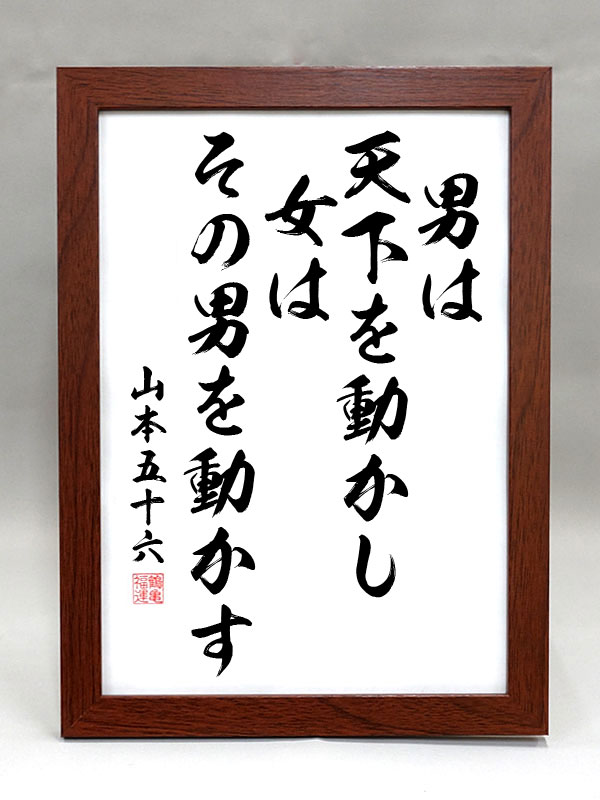 男は
天下を動かし
女は
その男を動かす
山本五十六
鶴亀
福運